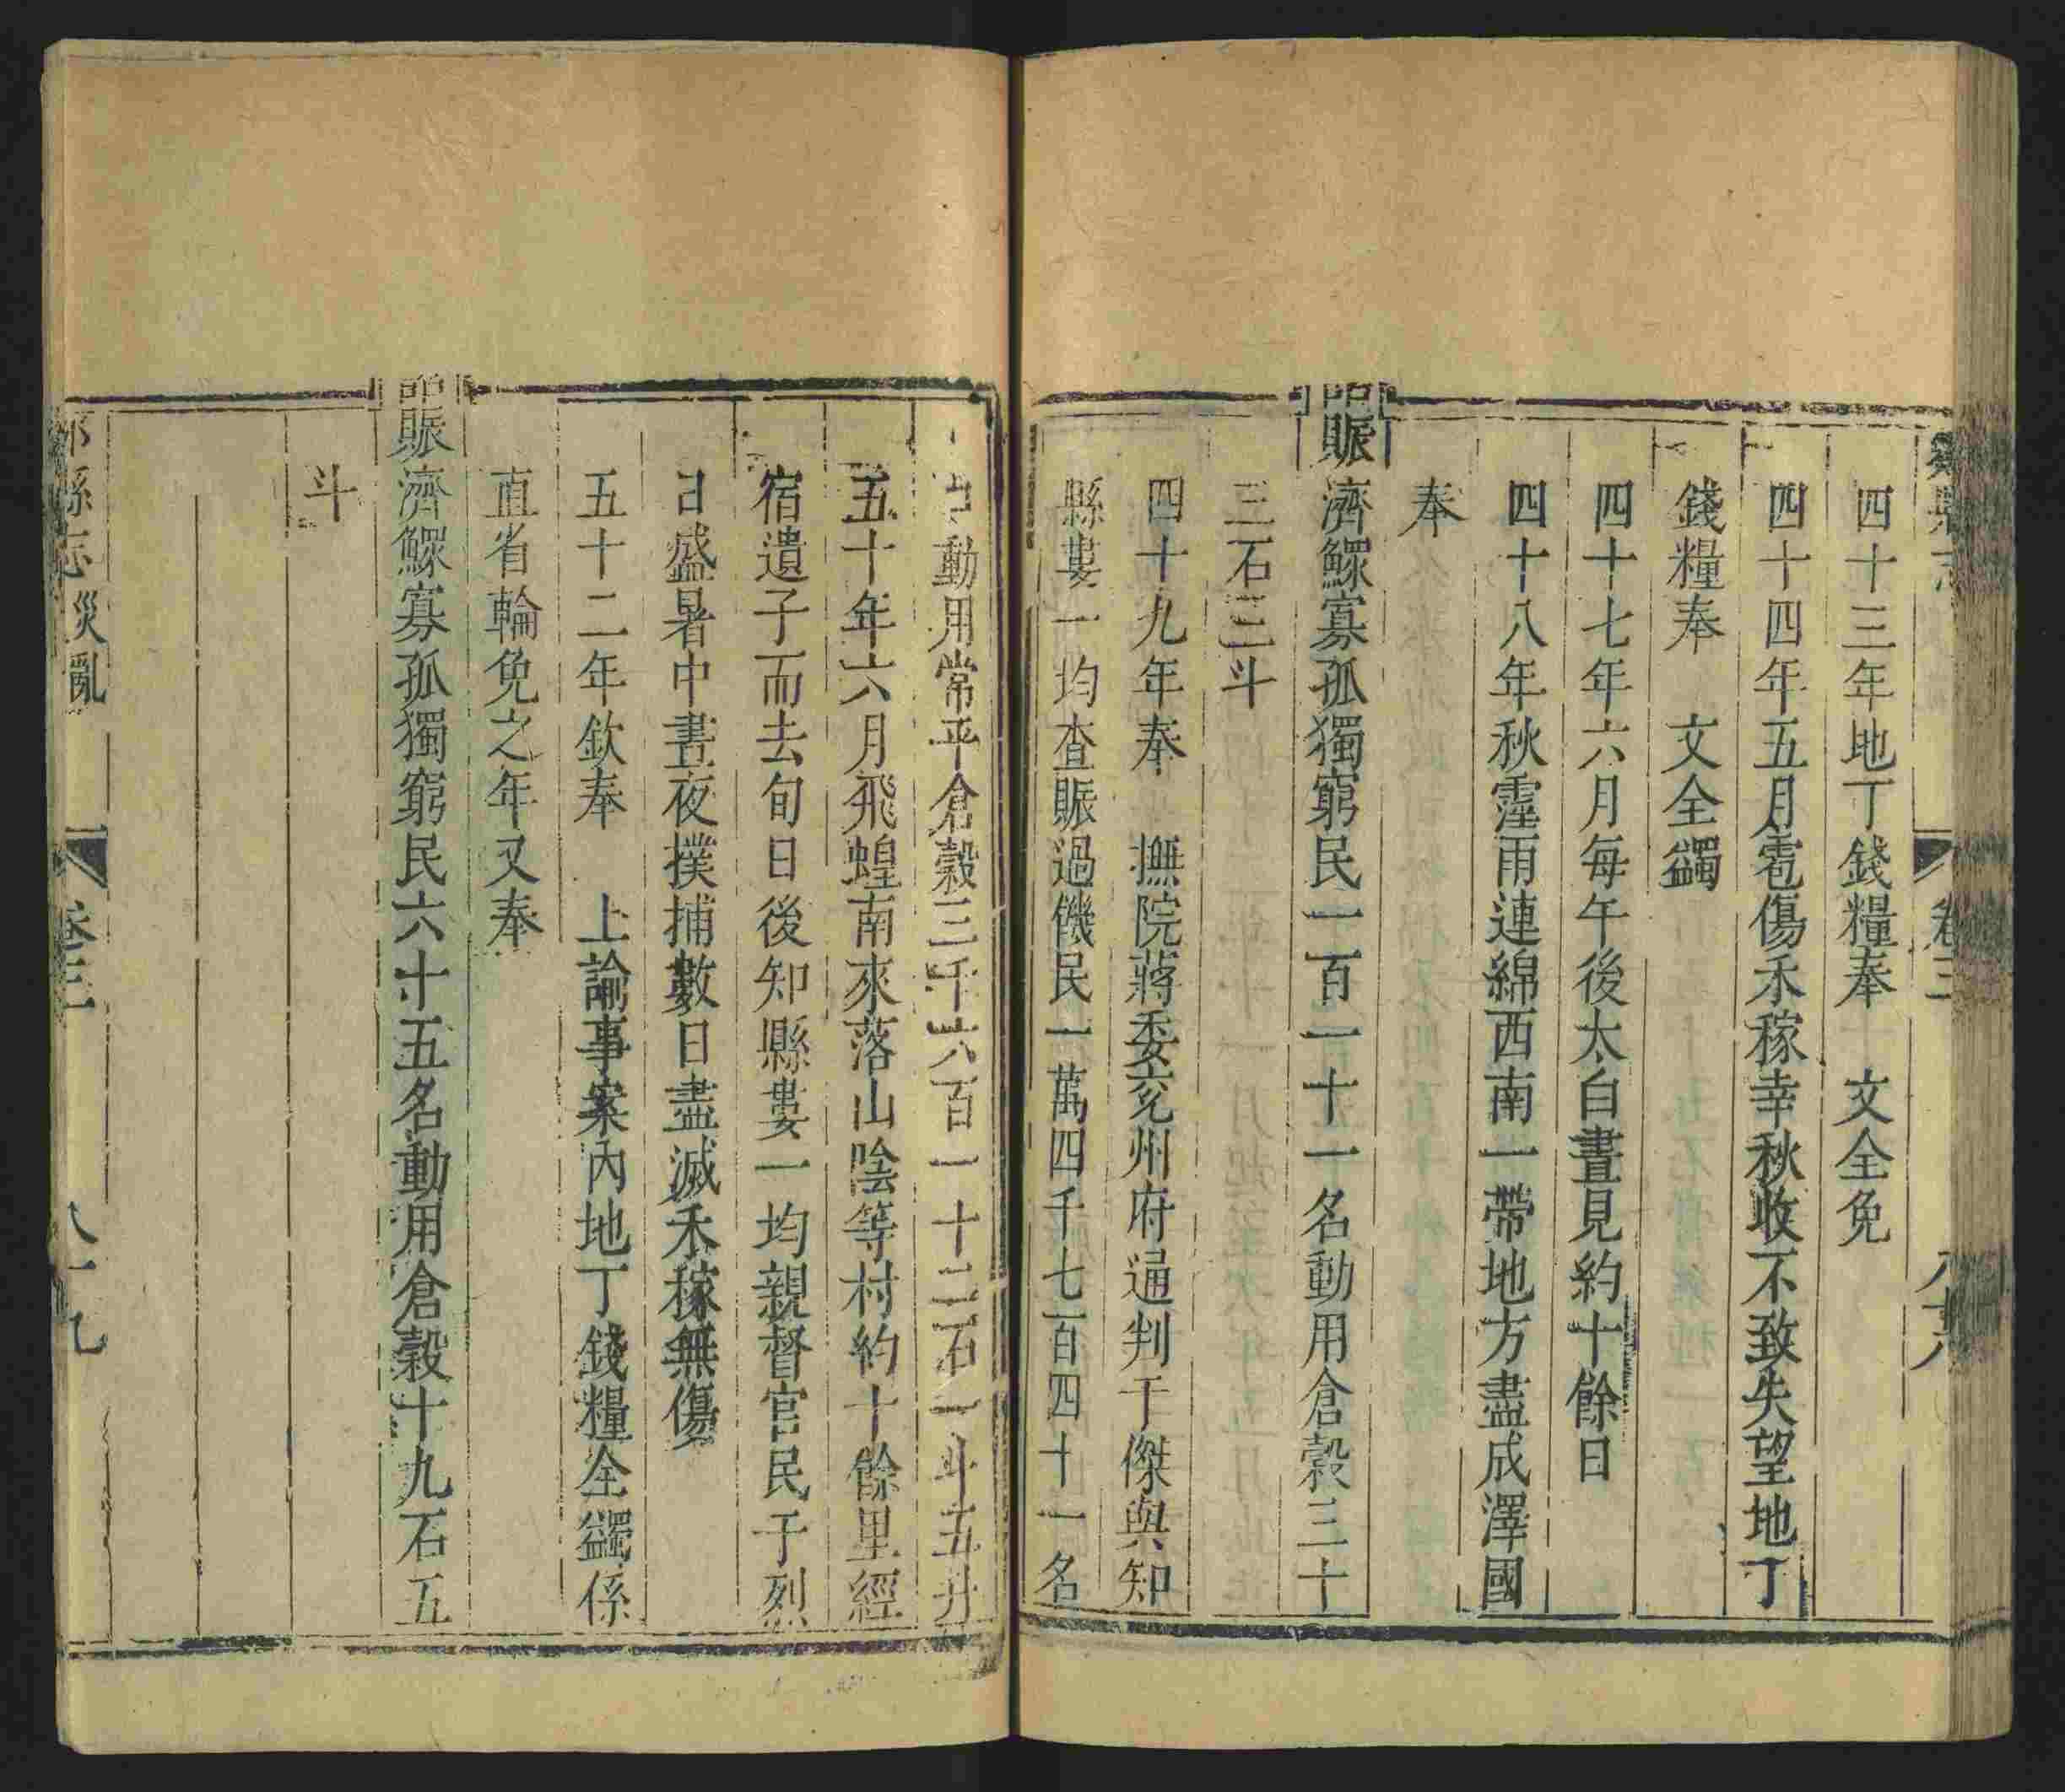 縣志 卷三
四十三年地丁錢糧奉 文全免
四十四年五月雹傷禾稼幸秋收不致失望地丁
錢糧奉 文全蠲
四十七年六月每午後太白晝見約十餘日
四十八年秋霪雨連綿西南一帶地方盡成澤國
奉
詔賑濟鰥寡孤獨窮民一百一十一名動用倉穀三十
三石三斗
四十九年奉 撫院蔣委兖州府通判于傑與知
縣婁一均查賑過饑民一萬四千七百四十一名
口動用常平倉穀三千六百一十二石一斗五升
五十年六月飛蝗南來落山陰等村約十餘里經
宿遺子而去旬日後知縣婁一均親督官民于烈
日盛暑中晝夜撲捕數日盡滅禾稼無傷
五十二年欽奉 上諭事案內地丁錢糧全蠲係
直省輪免之年又奉
詔賑濟鰥寡孤獨窮民六十五名動用倉穀十九石五
斗
縣志 災亂 卷三 八十九